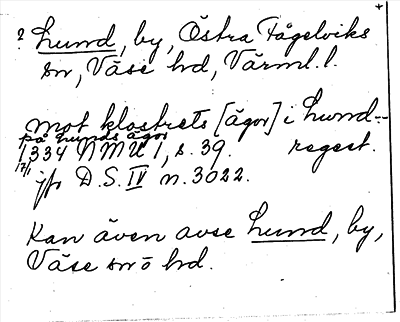 ? Lund, by, Östra Fågelviks
sn, Väse hd, Värml. l.
mot klostrets [ägor] i Lund--
på hunds ägor
1334 NMU 1, s. 39. regest.
17/1
jfr D.S. IV n. 3022.
Kan även avse Lund, by,
Väse sn o hd.